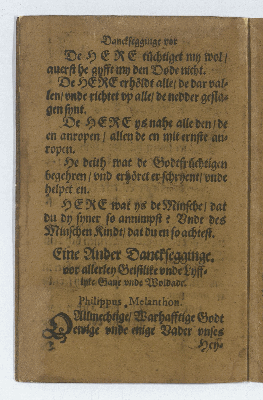 Dancksegginge vor
De HERE tüchtiget my wol /
querst he gyfft my den Dode nicht.
De HERE erhöldt alle / de dar val-
len / vnde richtet vp alle / de nedder gesla-
gen synt.
De HERE ys nahe alle den / de
en anropen / allen de en mit ernste an-
ropen.
He deith wat de Godtfrüchtigen
begehren / vnd erhöret er schryent / vnde
helpet en.
HERE wat ys de Minsche / dat
du dy syner so annimpst? Vnde des
Minschen Kindt / dat du en so achtest.
Eine Ander Dancksegginge,
vor allerley Geistlike vnde Lyff-
lyke Gaue vnde Woldade.
Philippus Melanthon.
O Allmechtige / Warhafftige Godt
ewige vnde enige Vader vnses
Hey-